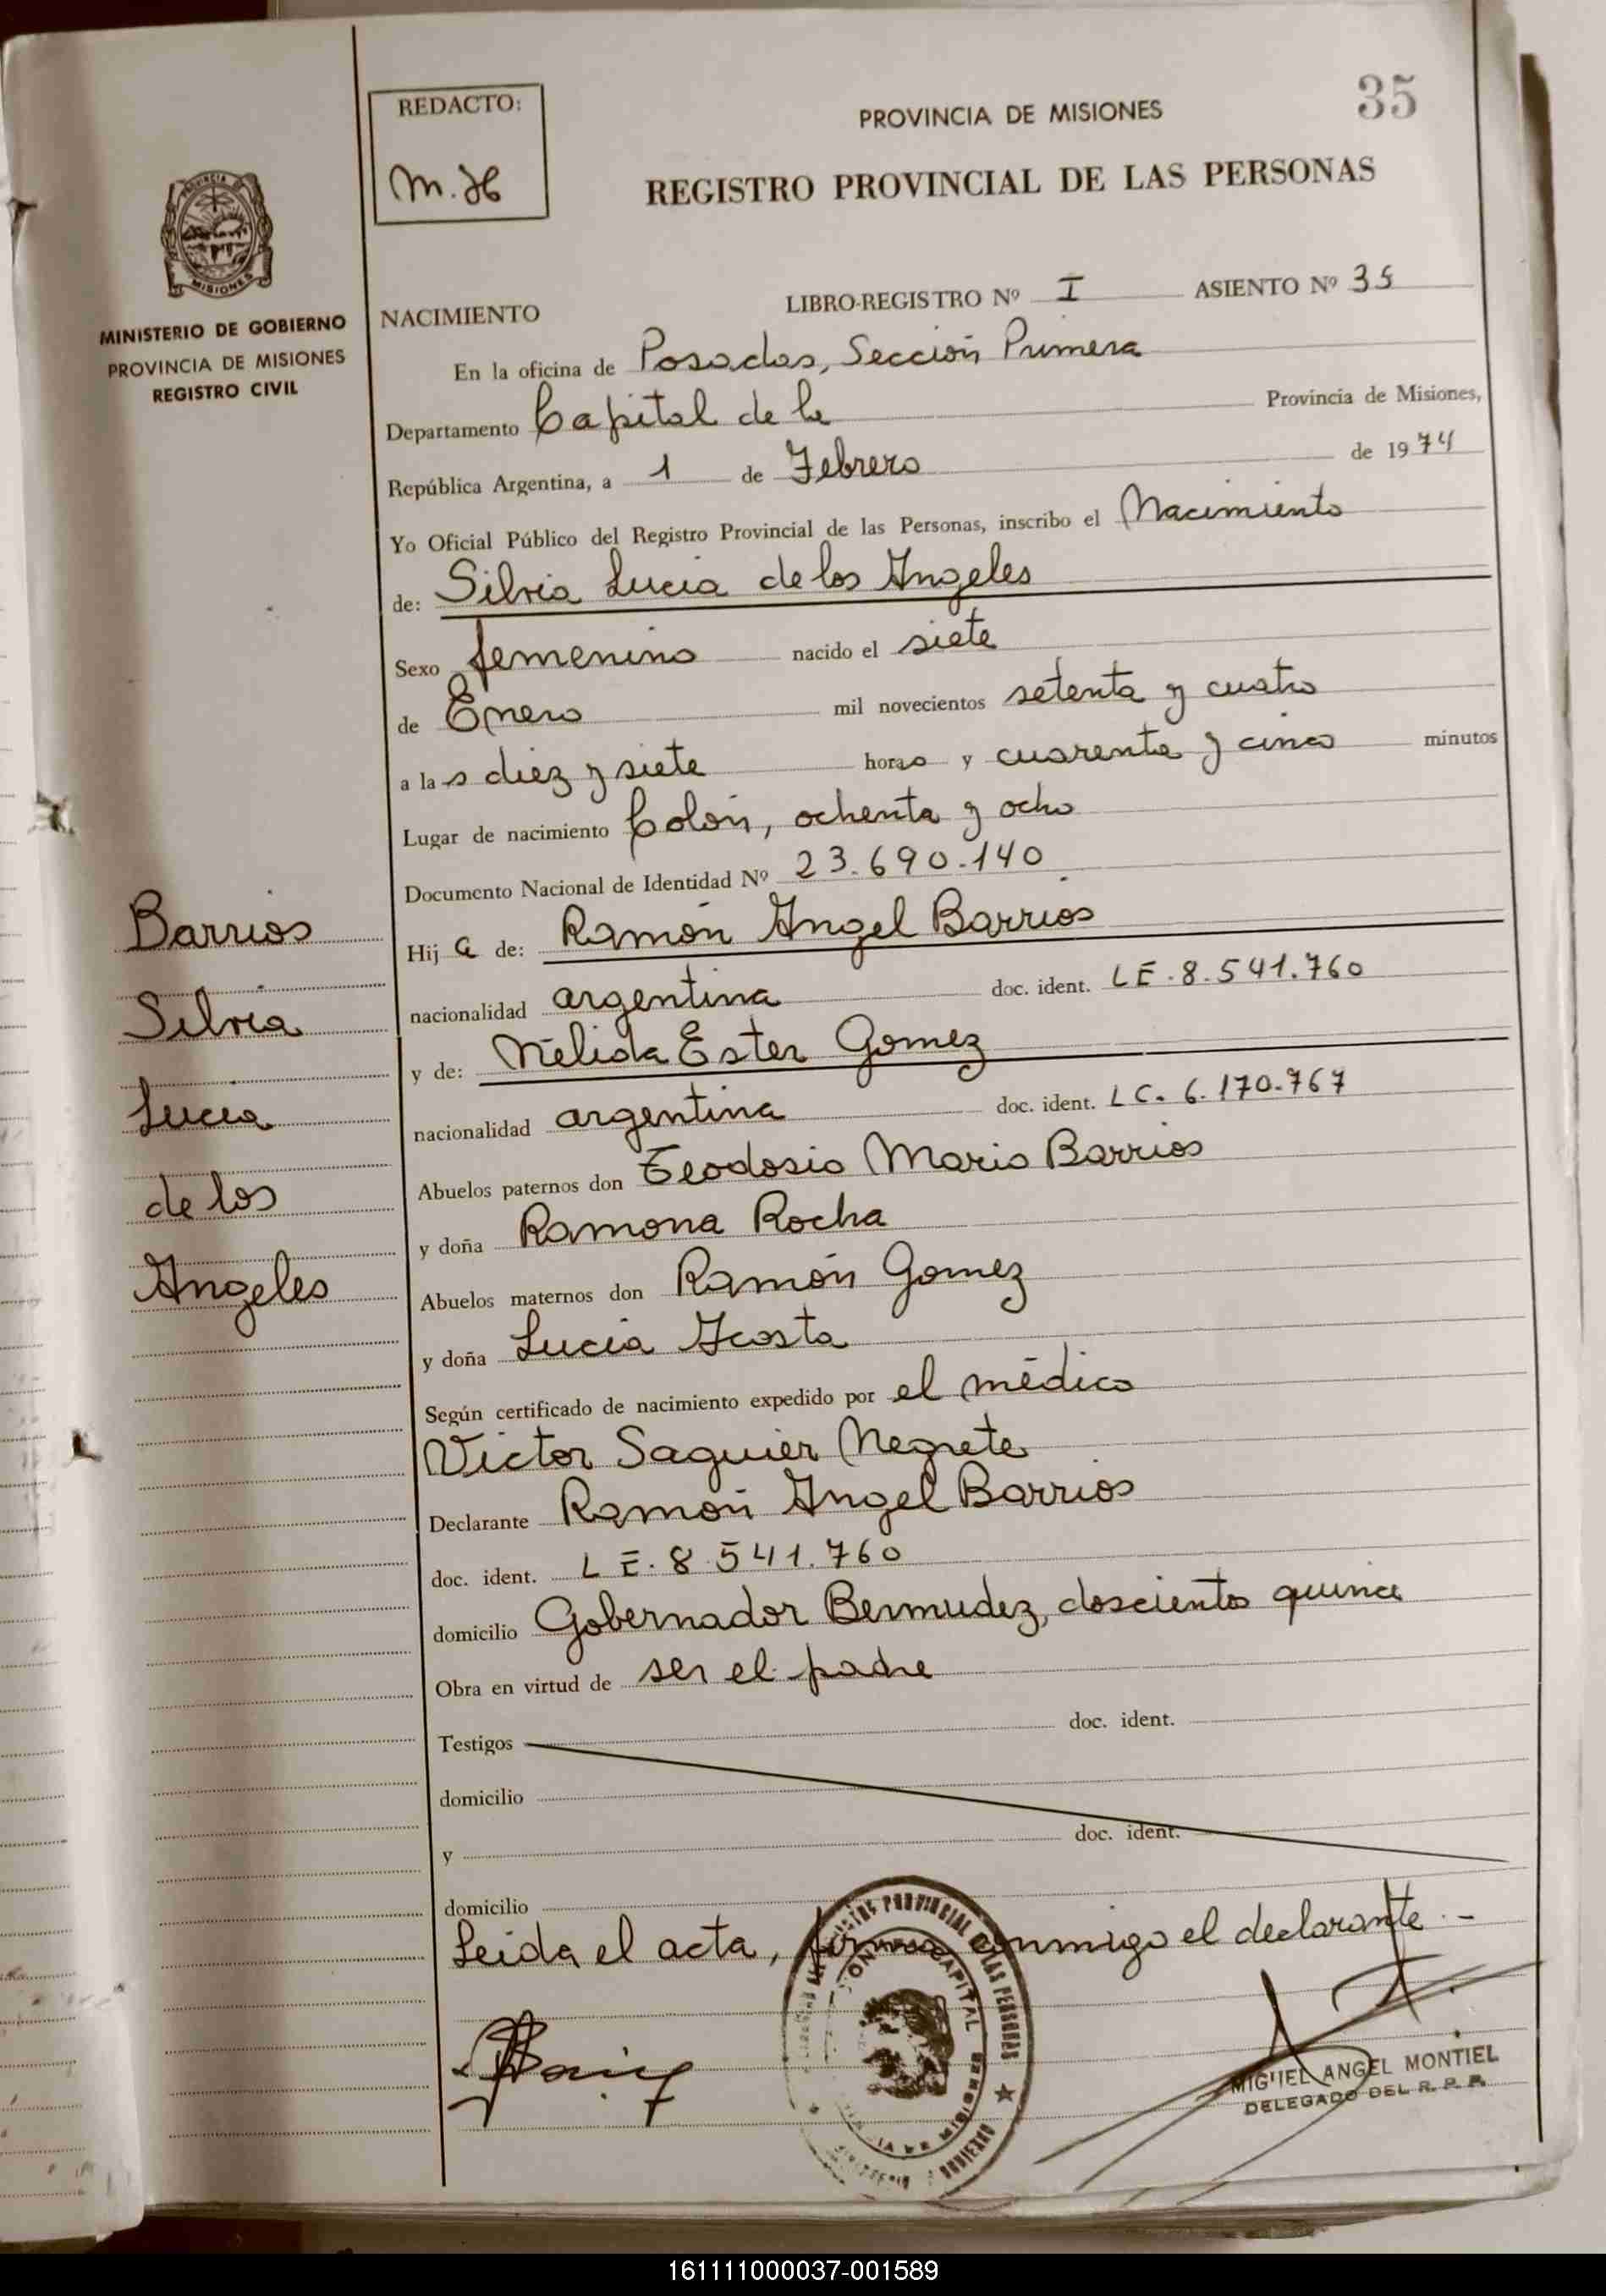 35
REDACTO:
M.H
PROVINCIA DE MISIONES
REGISTRO PROVINCIAL DE LAS PERSONAS
MISIONES
MINISTERIO DE GOBIERNO
PROVINCIA DE MISIONES
REGISTRO CIVIL
NACIMIENTO LIBRO-REGISTRO Nº I ASIENTO Nº 35
En la oficina de Posadas, Sección Primera
Departamento Capital de la Provincia de Misiones,
República Argentina, a 1 de Febrero de 1974
Yo Oficial Público del Registro Provincial de las Personas, inscribo el Nacimiento
de: Silvia Lucia de los Angeles
Sexo femenino nacido el siete
de Enero mil novecientos setenta y cuatro
a las diez y siete horas y cuarenta y cinco minutos
Lugar de nacimiento Colón, ochenta y ocho
Documento Nacional de Identidad Nº 23.690.140
Hija de: Ramón Angel Barrios
nacionalidad argentina doc. ident. LE.8.541.760
y de: Nélida Ester Gomez
nacionalidad argentina doc. ident. LC. 6.170.767
Abuelos paternos don Teodosio Mario Barrios
y doña Ramona Rocha
Abuelos maternos don Ramón Gomez
y doña Lucia Acosta
Según certificado de nacimiento expedido por el médico
Victor Saguier Negrete
Declarante Ramón Angel Barrios
doc. ident. LE.8.541.760
domicilio Gobernador Bermudez, doscientos quince
Obra en virtud de ser el padre
Testigos doc. ident.
domicilio
y doc. ident.
domicilio
Leida el acta, firma conmigo el declarante.-
MIGUEL ANGEL MONTIEL
DELEGADO DEL R. P. P.
Barrios
Silvia
Lucia
de los
Angeles
161111000037-001589